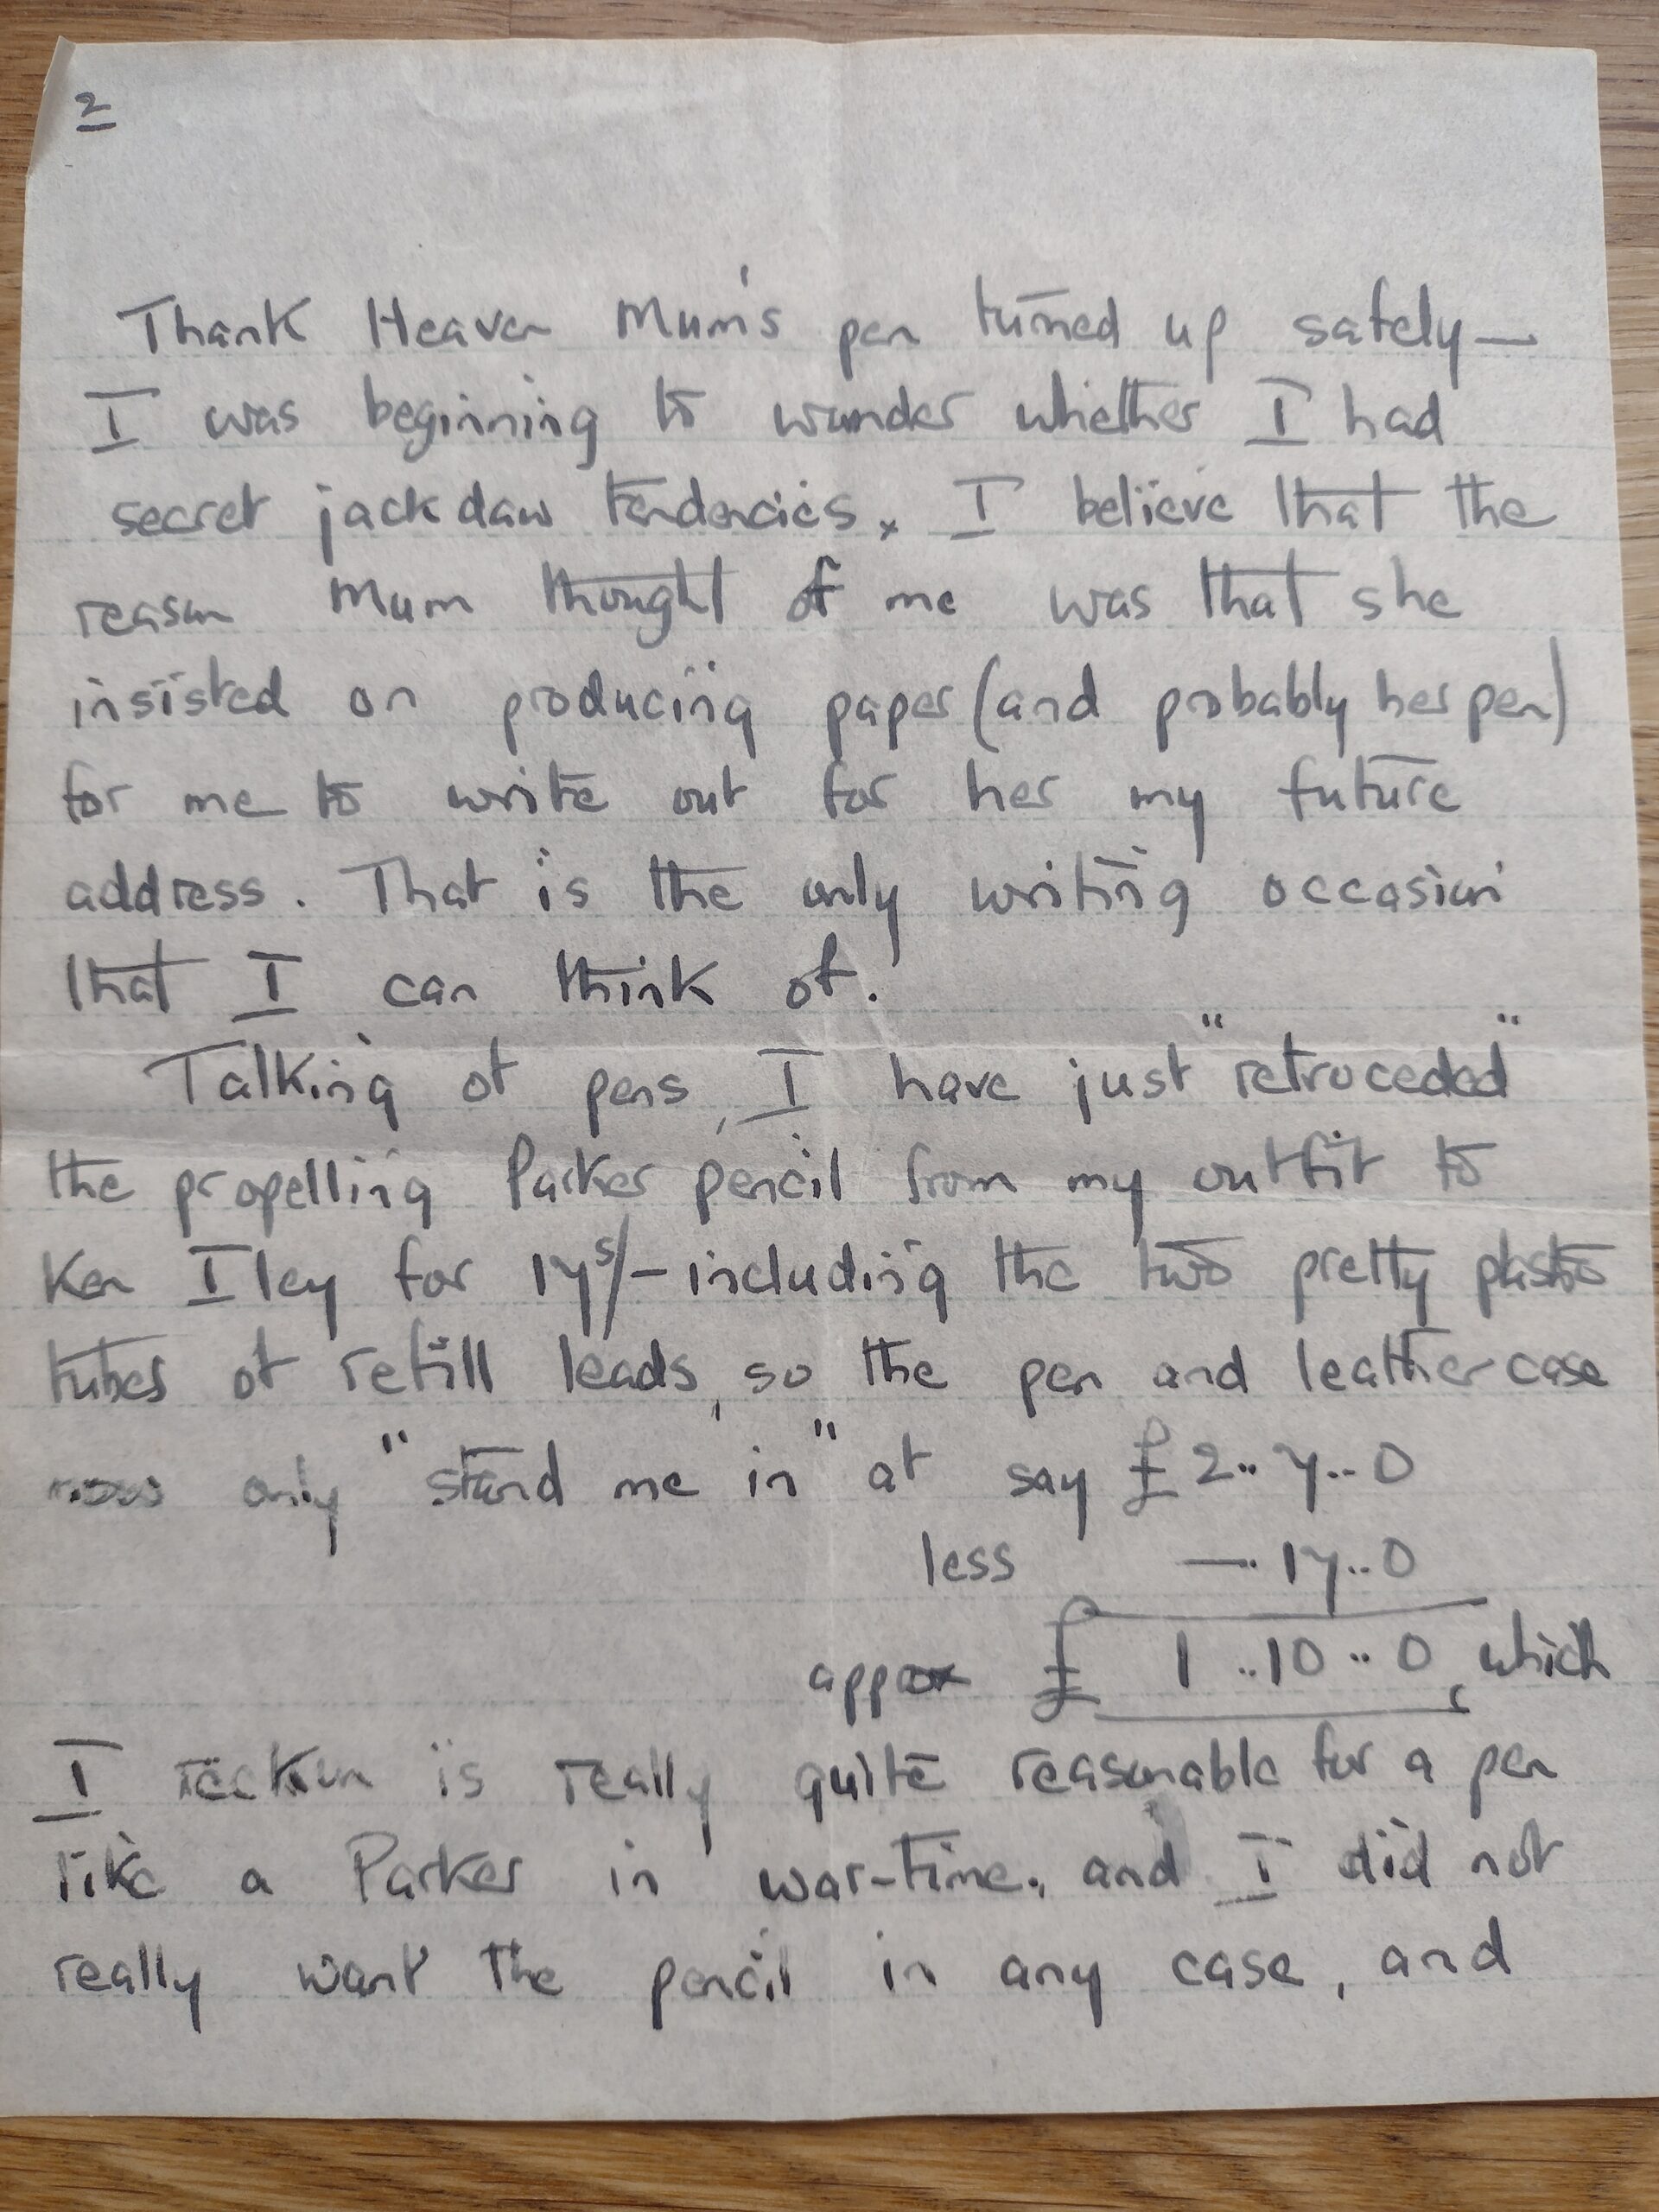 2
Thank Heaven Mum's pen turned up safely—
I was beginning to wonder whether I had
secret jackdaw tendencies. I believe that the
reason Mum thought of me was that she
insisted on producing paper (and probably her pen)
for me to write out for her my future
address. That is the only writing occasion
that I can think of.
Talking of pens, I have just "retroceded"
the propelling Parker pencil from my outfit to
Ken Iley for 17s/- including the two pretty plastic
tubes of refill leads, so the pen and leather case
now only "stand me in" at say £2..7..0
less —..17..0
approx £ 1..10..0, which
I reckon is really quite reasonable for a pen
like a Parker in war-time, and I did not
really want the pencil in any case, and